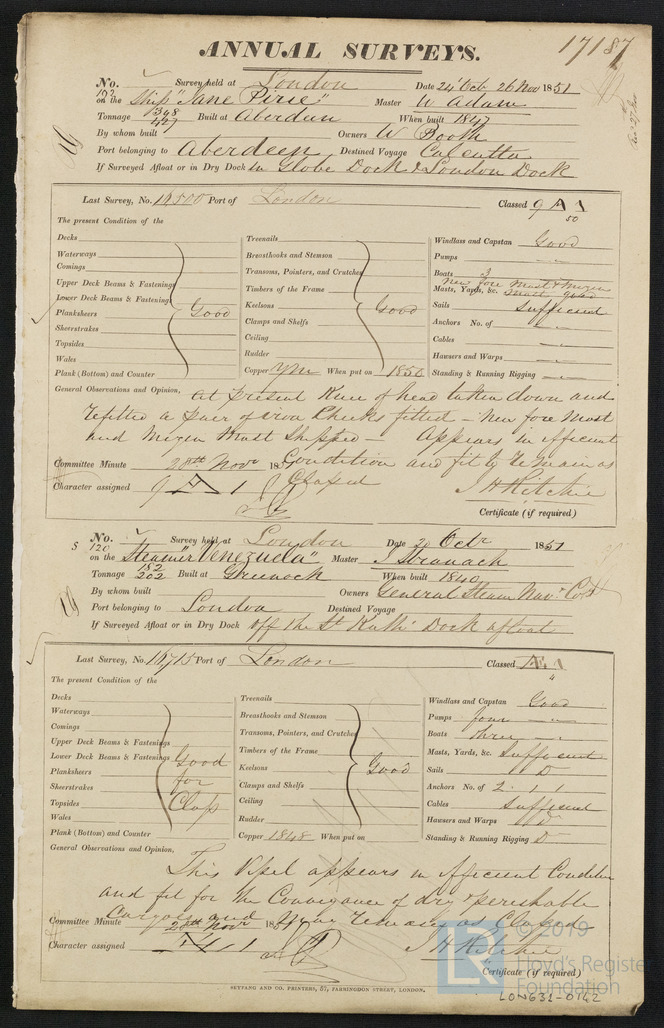 ANNUAL SURVEYS.
17187
No. 119 Survey held at London Date 24 Octr 26 Nov 1851
on the Ship "Jane Pirie" Master W Adam
Tonnage 548 427 Built at Aberdeen When built 1847
By whom built Owners W Booth
Port belonging to Aberdeen Destined Voyage Calcutta
If Surveyed Afloat or in Dry Dock in Globe Dock & London Dock
Last Survey, No. 16500 Port of London Classed 9 A 1
50
The present Condition of the
Decks
Waterways
Comings
Upper Deck Beams & Fastenings
Lower Deck Beams & Fastenings
Planksheers Good
Sheerstrakes
Topsides
Wales
Plank (Bottom) and Counter
Treenails
Breasthooks and Stemson
Transons, Pointers, and Crutches
Timbers of the Frame
Keelsons Good
Clamps and Shelfs
Ceiling
Rudder
Copper YM When put on 1850
Windlass and Capstan Good
Pumps
Boats 3
New fore Mast & Mizen
Masts, Yards, &c. Mast good
Sails Sufficient
Anchors No. of
Cables
Hawsers and Warps
Standing & Running Rigging
General Observations and Opinion, At present Knee of head taken down and
refitted a pair of iron Cheeks fitted – New fore Mast
and Mizen Mast Shipped – Appears in efficient
Condition and fit to remain as
Classed
Committee Minute 28th Novr 1851
Character assigned 9 A 1
J H Ritchie
Certificate (if required)
No. 120 Survey held at London Date 20 Octr 1851
on the Steamer "Venezuela" Master J Stranack
Tonnage 182 202 Built at Greenock When built 1840
By whom built Owners General Steam Nav. Co
Port belonging to London Destined Voyage
If Surveyed Afloat or in Dry Dock off the St Kath Dock afloat
Last Survey, No. 16715 Port of London Classed A 1
The present Condition of the
Decks
Waterways
Comings
Upper Deck Beams & Fastenings
Lower Deck Beams & Fastenings Good
Planksheers for
Sheerstrakes
Topsides Class
Wales
Plank (Bottom) and Counter
Treenails
Breasthooks and Stemson
Transons, Pointers, and Crutches
Timbers of the Frame
Keelsons Good
Clamps and Shelfs
Ceiling
Rudder
Copper 1848 When put on
Windlass and Capstan Good
Pumps four
Boats three
Masts, Yards, &c. Sufficient
Sails Do
Anchors No. of 2 . 1 . 1
Cables Sufficient
Hawsers and Warps Do
Standing & Running Rigging Do
General Observations and Opinion,
This Vessel appears in efficient Condition
and fit for the Conveyance of dry & perishable
Cargoes and may remain as Classed
Committee Minute 28th Novr 1851
Character assigned A 1
J H Ritchie
Certificate (if required)
SEYFANG AND CO. PRINTERS, 57, FARRINGDON STREET, LONDON.
LR © 2019
Lloyd's Register
Foundation
LON631-0142